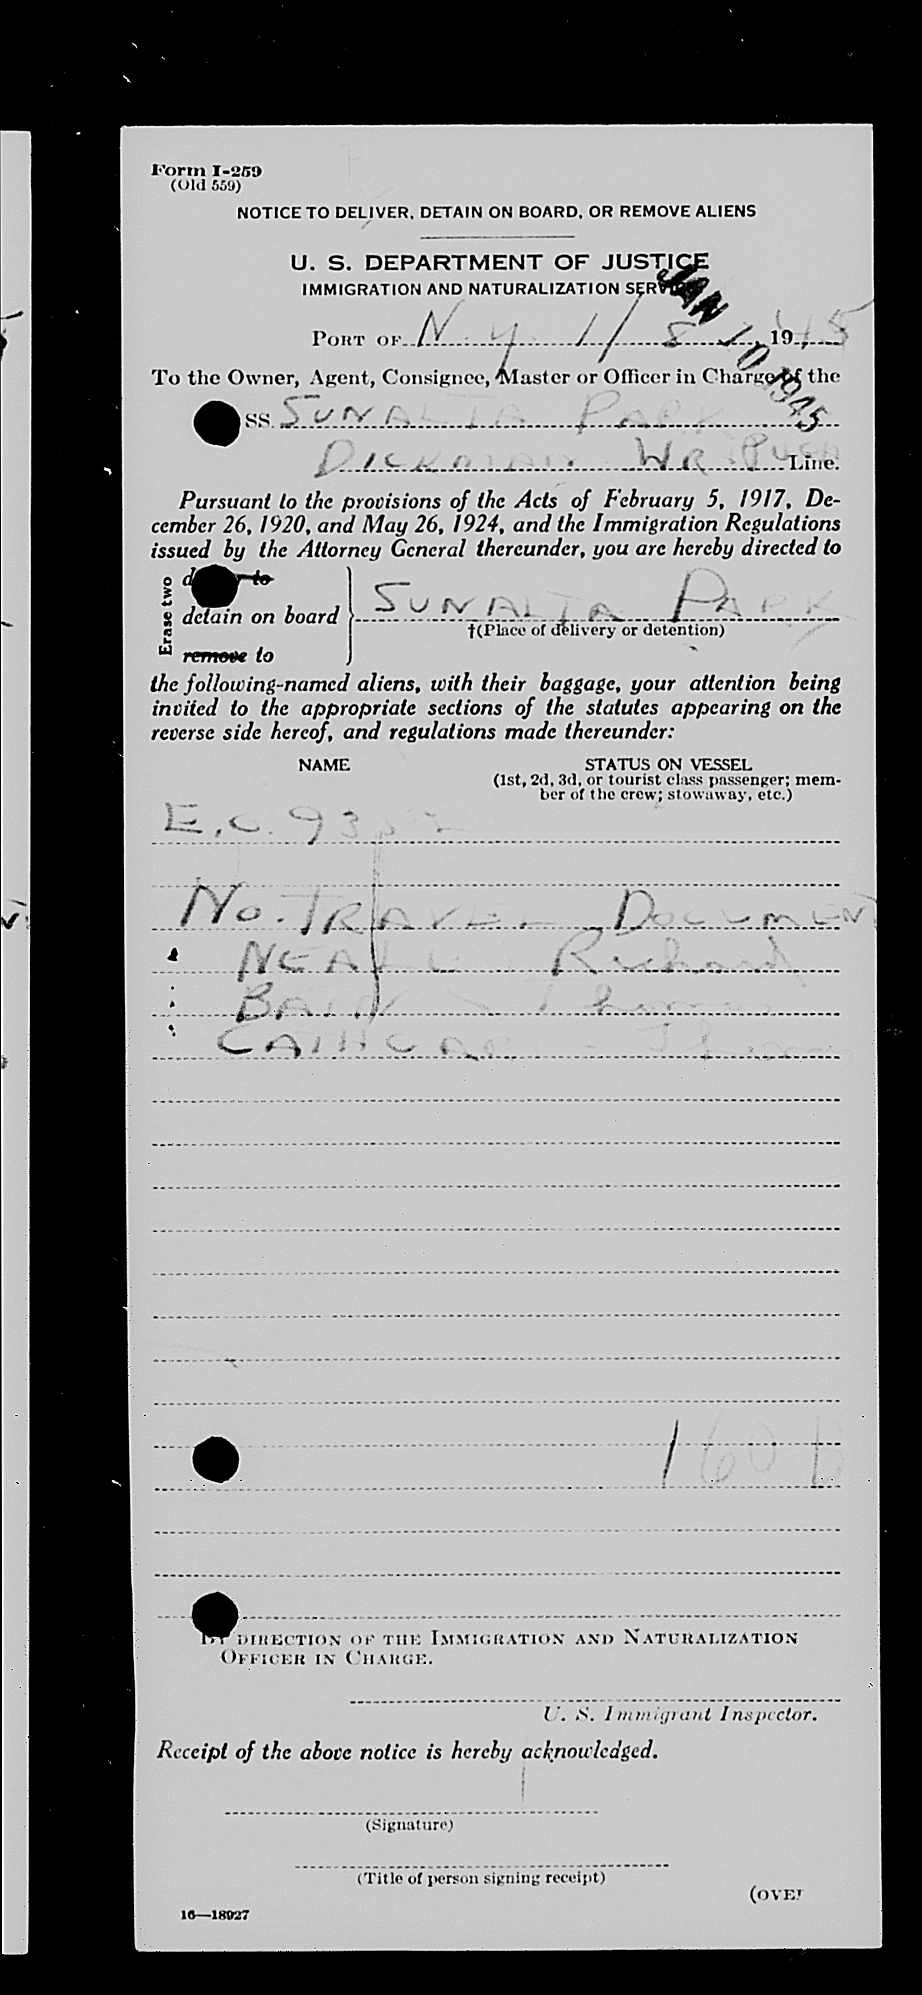 Form I-259
(Old 559)
NOTICE TO DELIVER, DETAIN ON BOARD, OR REMOVE ALIENS
U. S. DEPARTMENT OF JUSTICE
IMMIGRATION AND NATURALIZATION SERVICE
JAN 10 1945
PORT OF N.Y. 1/8, 1945
To the Owner, Agent, Consignee, Master or Officer in Charge of the
SS. SUNALTA PARK
DICKMAN WR. PUGH Line.
Pursuant to the provisions of the Acts of February 5, 1917, De-
cember 26, 1920, and May 26, 1924, and the Immigration Regulations
issued by the Attorney General thereunder, you are hereby directed to
Erase two
to
detain on board
SUNALTA PARK
†(Place of delivery or detention)
remove to
the following-named aliens, with their baggage, your attention being
invited to the appropriate sections of the statutes appearing on the
reverse side hereof, and regulations made thereunder:
NAME STATUS ON VESSEL
(1st, 2d, 3d, or tourist class passenger; mem-
ber of the crew; stowaway, etc.)
E.O. 9352
NO. TRAVEL DOCUMENT
NEALE Richard
BAIN Thomas
CATHCART -
BY DIRECTION OF THE IMMIGRATION AND NATURALIZATION
OFFICER IN CHARGE.
U. S. Immigrant Inspector.
Receipt of the above notice is hereby acknowledged.
(Signature)
(Title of person signing receipt)
(OVER
16—18927